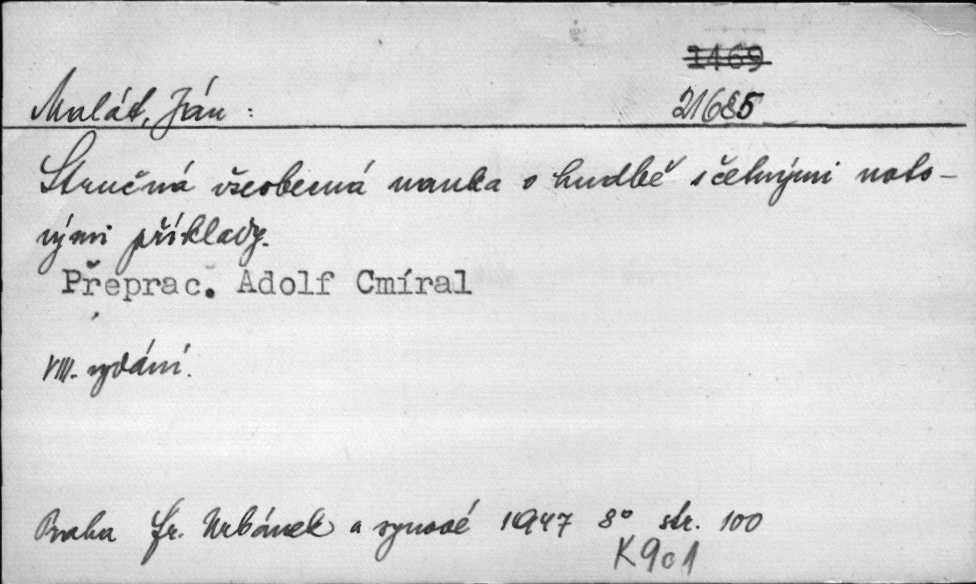 1469
Malát, Ján :
21685
Stručná všeobecná nauka o hudbě s četnými noto-
vými příklady.
Přeprac. Adolf Cmíral
VIII. vydání.
Praha Fr. Urbánek a synové 1947 8° str. 100
K901